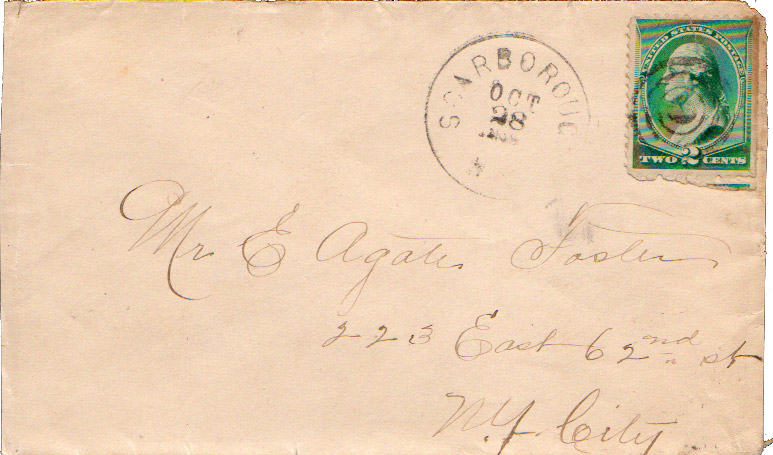 SCARBOROUG
OCT
28
UNITED STATES POSTAGE
TWO 2 CENTS
Mr E Agate Foster
223 East 62nd st
N.Y. City